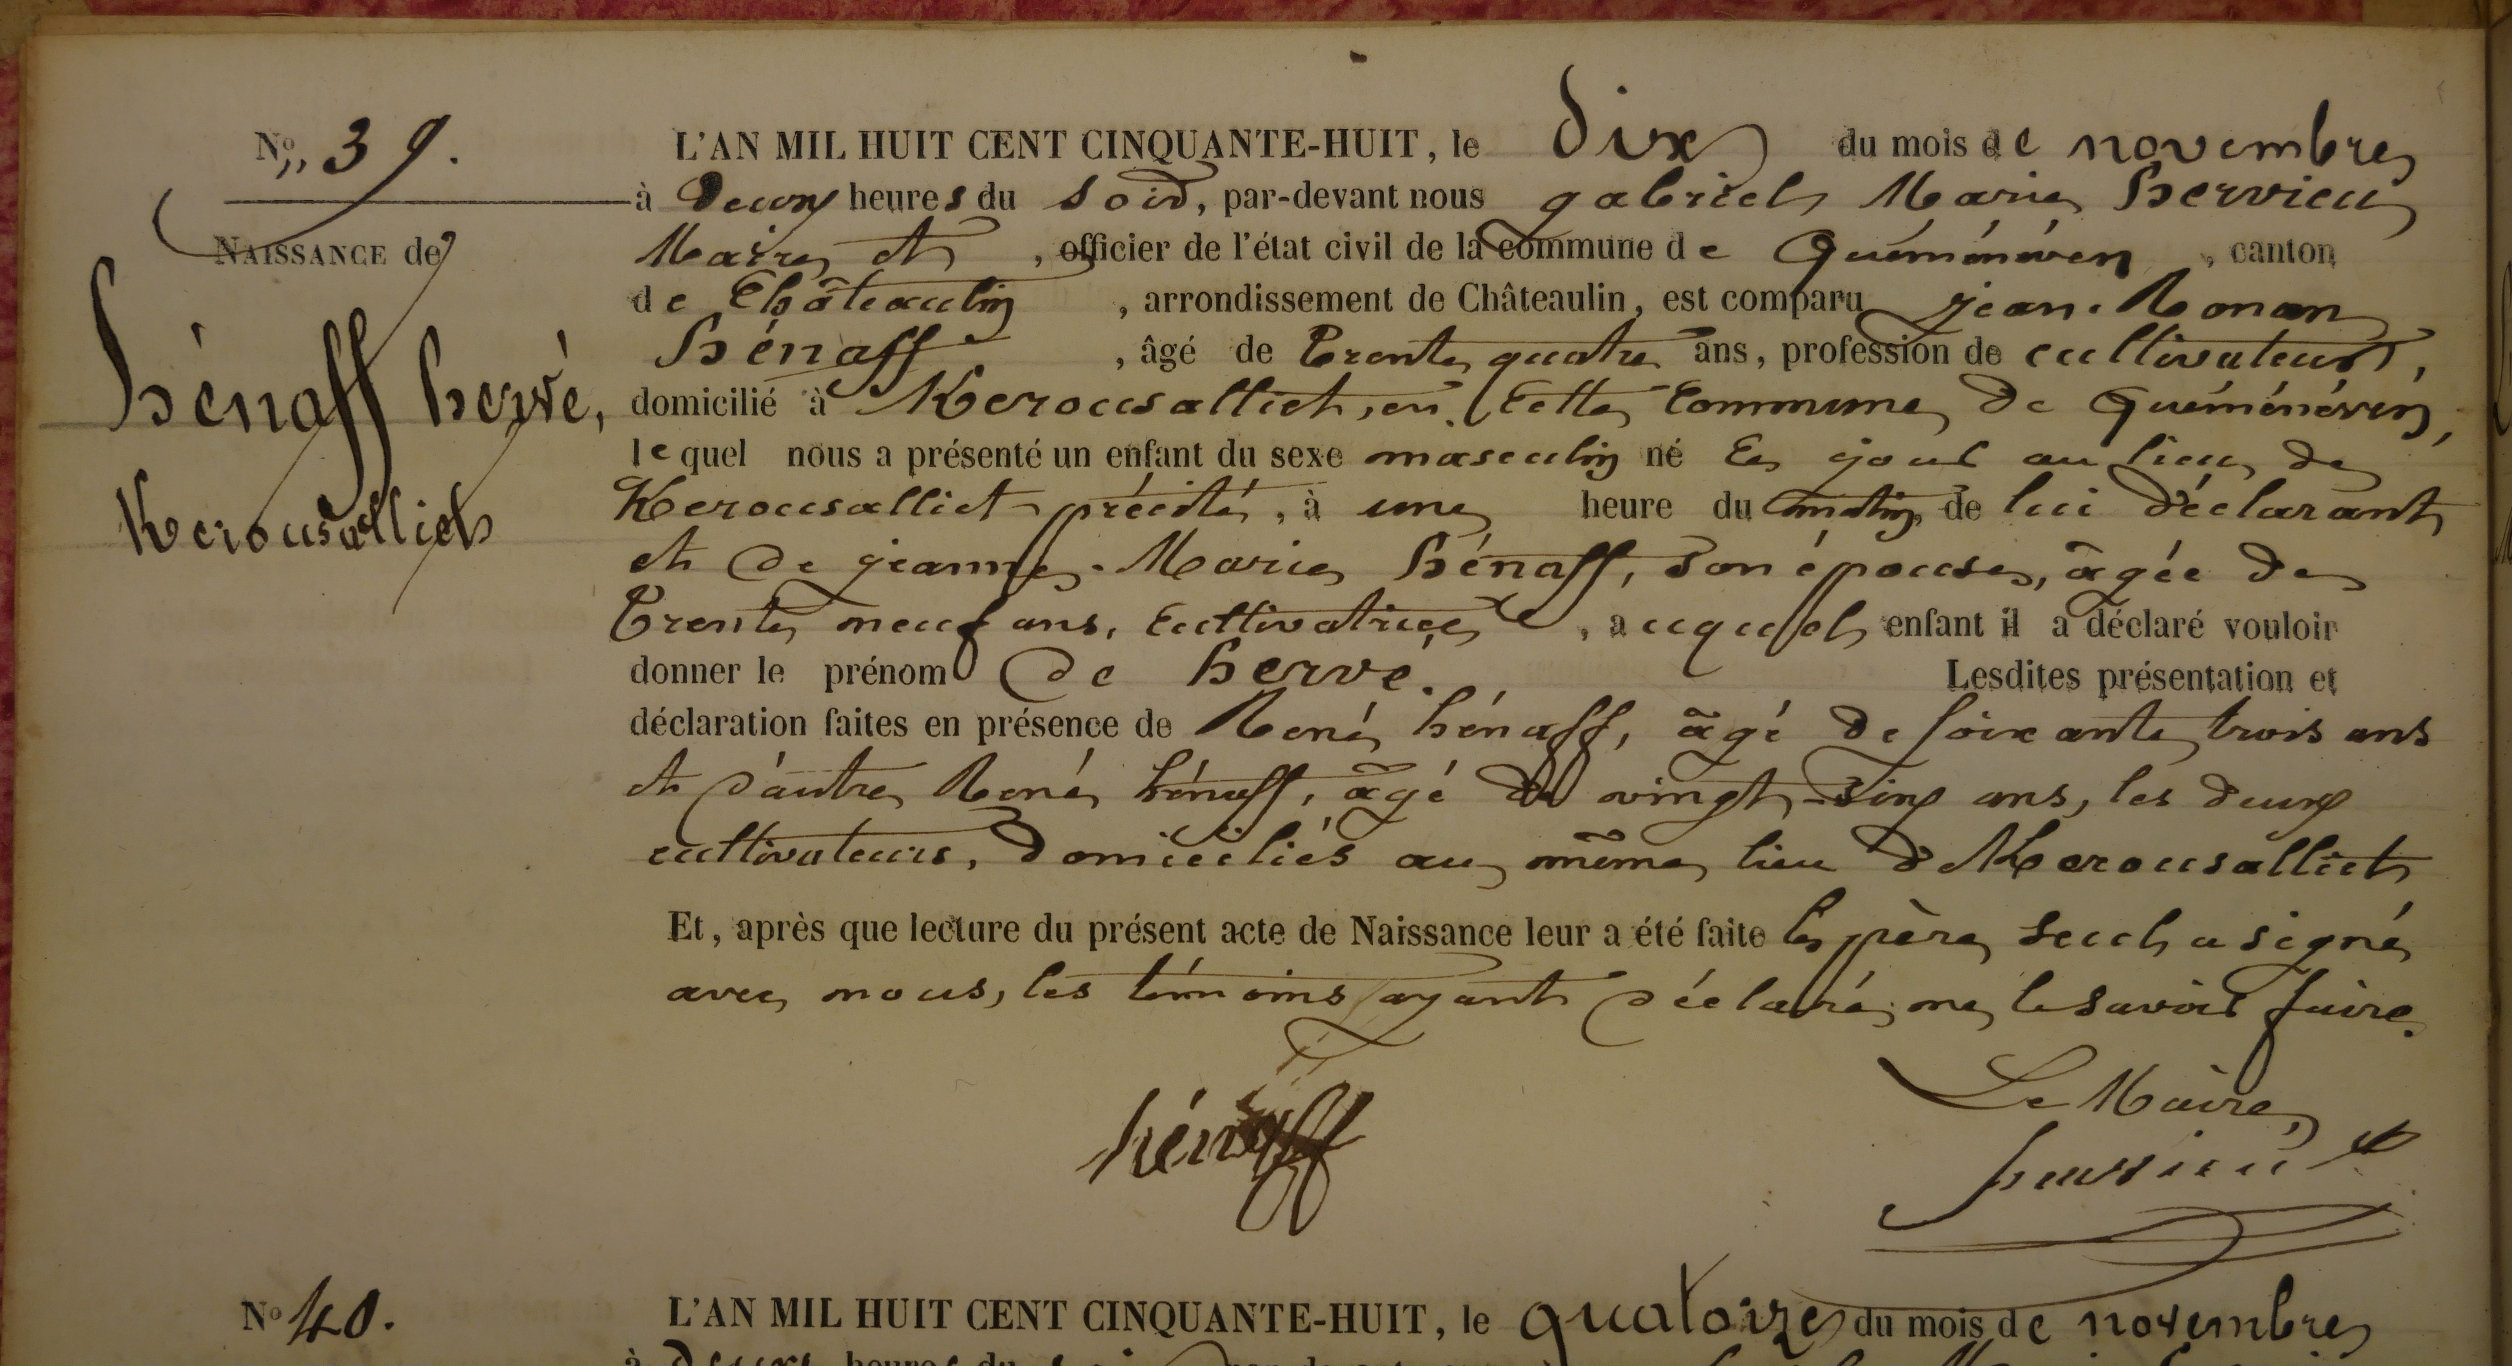 No 39.
NAISSANCE de
hénaff hervé,
Kerousalliet
L'AN MIL HUIT CENT CINQUANTE-HUIT, le dix du mois de novembre
à Deux heures du soir, par-devant nous gabriel Marie hervieu
Maire et , officier de l'état civil de la commune de Quéménéven , canton
de Châteaulin , arrondissement de Châteaulin, est comparu jean-Ronan
hénaff , âgé de Trente quatre ans, profession de cultivateur,
domicilié à Kerousalliet, en Cette Commune de Quéménéven,
lequel nous a présenté un enfant du sexe masculin né Ce jour au lieu de
Kerousalliet précité, à une heure du matin, de lui déclarant
et de jeanne-Marie hénaff, son épouse, âgée de
Trente neuf ans, Cultivatrice , auquel enfant il a déclaré vouloir
donner le prénom de hervé. Lesdites présentation et
déclaration faites en présence de René hénaff, âgé de soixante trois ans
et d'autre René hénaff, âgé de vingt-six ans, les deux
cultivateurs, domiciliés au même lieu de Kerousalliet
Et, après que lecture du présent acte de Naissance leur a été faite le père seul a signé
avec nous, les témoins ayant déclaré ne le savoir faire.
Le Maire,
hénaff
hervieu
No 40.
L'AN MIL HUIT CENT CINQUANTE-HUIT, le quatorze du mois de novembre
à Deux heures du